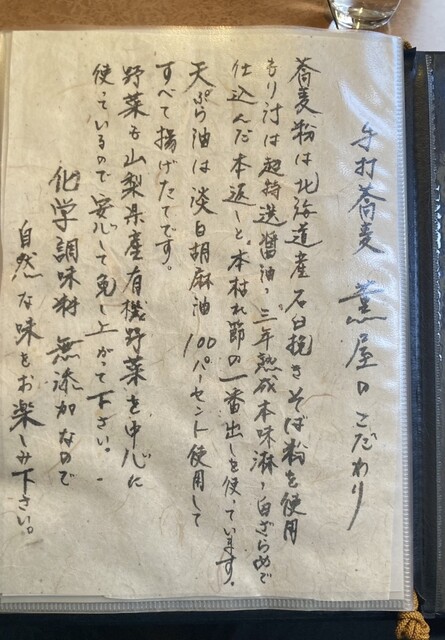 手打蕎麦 薫屋のこだわり
蕎麦粉は北海道産石臼挽きそば粉を使用
もり汁は超特選醤油、三年熟成本味淋、白ざらめで
仕込んだ本返しと、本枯れ節の一番出しを使っています。
天ぷら油は淡白胡麻油 100パーセント使用して
すべて揚げたてです。
野菜も山梨県産有機野菜を中心に
使っているので安心して免し上がって下さい。
化学調味料 無添加なので
自然な味をお楽しみ下さい。